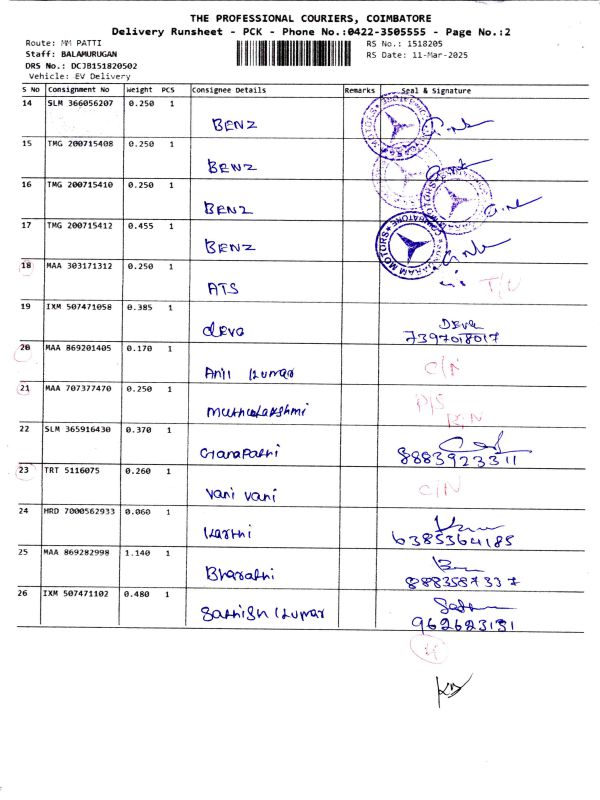 THE PROFESSIONAL COURIERS, COIMBATORE
Delivery Runsheet - PCK - Phone No.:0422-3505555 - Page No.:2
Route: MM PATTI RS No.: 1518205
Staff: BALAMURUGAN RS Date: 11-Mar-2025
DRS No.: DCJB151820502
Vehicle: EV Delivery
S No Consignment No Weight PCS Consignee Details Remarks Seal & Signature
14 SLM 366056207 0.250 1
BENZ
15 TMG 200715408 0.250 1
BENZ
16 TMG 200715410 0.250 1
BENZ
17 TMG 200715412 0.455 1
BENZ
18 MAA 303171312 0.250 1
ATS
19 IXM 507471058 0.385 1
deva Deva
7397018017
20 MAA 869201405 0.170 1
Anil kumar C/N
21 MAA 707377470 0.250 1
muthulakshmi P/S
22 SLM 365916430 0.370 1
Ganapathi 8883923311
23 TRT 5116075 0.260 1
vani vani C/N
24 HRD 7000562933 0.060 1
karthi 6385364185
25 MAA 869282998 1.140 1
Bharathi 8883587337
26 IXM 507471102 0.480 1
Sathish kumar
962623151
4